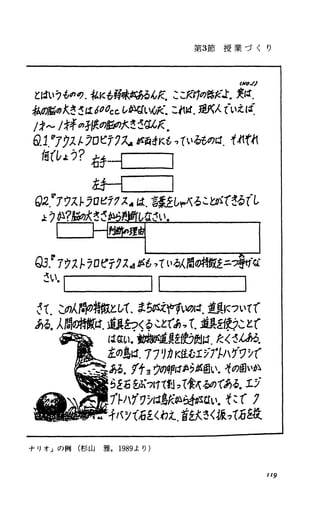 第3節 授業づくり
(NO.2)
とはいうものの、私にも弱味があるんだ。ここだけの話だよ。実は、
私の脳の大きさは600ccしかないんだ。これは、現代人でいえば
/才の子供の脳の大きさなんだ。
Q1.『アウストラロピテクス』が両手にもっているものは、それぞれ
何でしょう?
右手
左手
Q2.『アウストラロピテクス』は、言葉をしゃべることができるでし
ょうか?脳の大きさから判断しなさい。
判断の理由
Q3.『アウストラロピテクス』がもっている人間の特徴を二つ挙げな
さい。
さて、この人間の特徴として、まちがえやすいのは、道具について
ある。人間の特徴は、道具をつくることであって、道具を使うことで
はない。動物が道具を使う例は、たくさんある。
左の鳥は、アフリカに住むエジプトハゲワシで
ある。ダチョウの卵はからが固い。その固いか
らを石をぶつけて割って食べるのである。エジ
プトハゲワシは鳥だから手がない。そこで ク
チバシで石をくわえ、首を大きく振って石を投
ナリオ」の例 (杉山 雅,1989より)
119